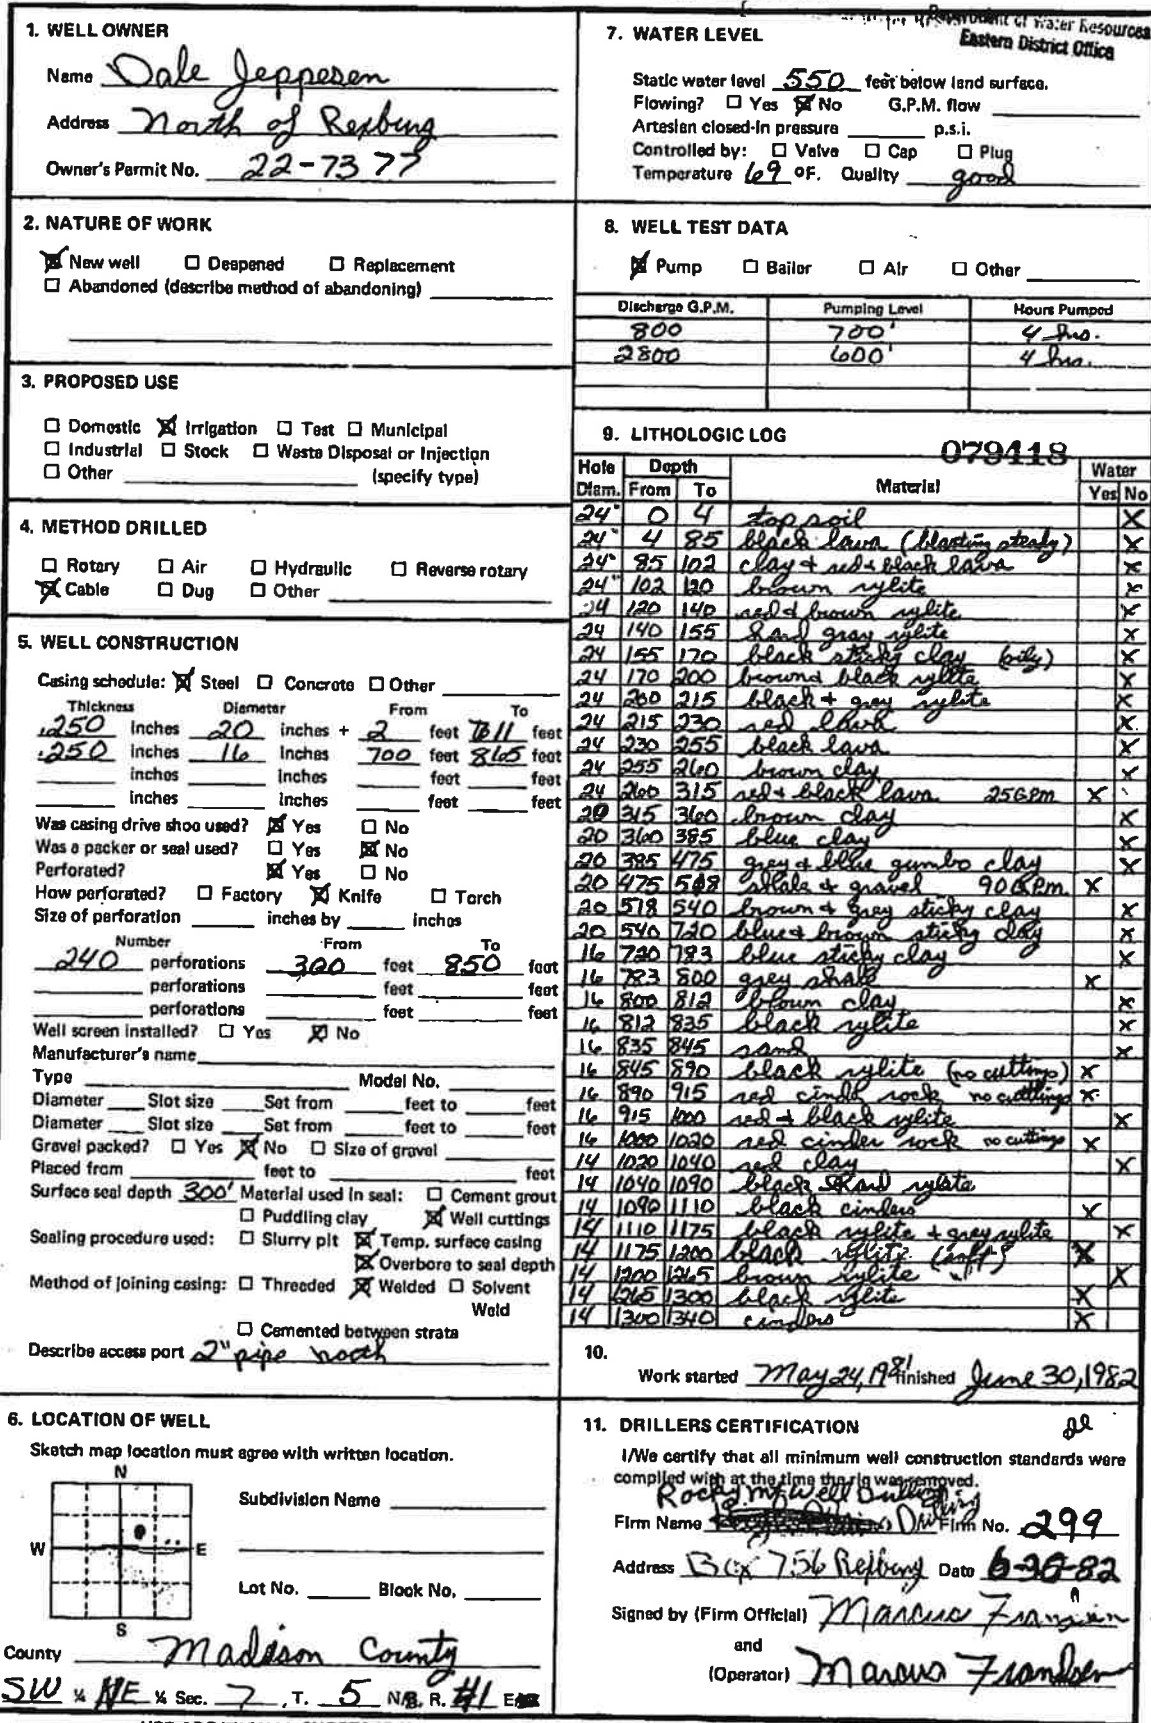 Department of Water Resources
Eastern District Office
1. WELL OWNER
Name Dale Jeppesen
Address North of Rexburg
Owner's Permit No. 22-7377
2. NATURE OF WORK
☒ New well ☐ Deepened ☐ Replacement
☐ Abandoned (describe method of abandoning)
3. PROPOSED USE
☐ Domestic ☒ Irrigation ☐ Test ☐ Municipal
☐ Industrial ☐ Stock ☐ Waste Disposal or Injection
☐ Other (specify type)
4. METHOD DRILLED
☐ Rotary ☐ Air ☐ Hydraulic ☐ Reverse rotary
☒ Cable ☐ Dug ☐ Other
5. WELL CONSTRUCTION
Casing schedule: ☒ Steel ☐ Concrete ☐ Other
Thickness Diameter From To
.250 inches 20 inches + 2 feet 611 feet
.250 inches 16 inches 700 feet 865 feet
inches inches feet feet
inches inches feet feet
Was casing drive shoe used? ☒ Yes ☐ No
Was a packer or seal used? ☐ Yes ☒ No
Perforated? ☒ Yes ☐ No
How perforated? ☐ Factory ☒ Knife ☐ Torch
Size of perforation inches by inches
Number From To
240 perforations 300 feet 850 feet
perforations feet feet
perforations feet feet
Well screen installed? ☐ Yes ☒ No
Manufacturer's name
Type Model No.
Diameter Slot size Set from feet to feet
Diameter Slot size Set from feet to feet
Gravel packed? ☐ Yes ☒ No ☐ Size of gravel
Placed from feet to feet
Surface seal depth 300' Material used in seal: ☐ Cement grout
☐ Puddling clay ☒ Well cuttings
Sealing procedure used: ☐ Slurry pit ☒ Temp. surface casing
☒ Overbore to seal depth
Method of joining casing: ☐ Threaded ☒ Welded ☐ Solvent
Weld
☐ Cemented between strata
Describe access port 2" pipe north
6. LOCATION OF WELL
Sketch map location must agree with written location.
N
W E
S
Subdivision Name
Lot No. Block No.
County Madison County
SW ¼ NE ¼ Sec. 7, T. 5 N/S, R. 41 E
7. WATER LEVEL
Static water level 550 feet below land surface.
Flowing? ☐ Yes ☒ No G.P.M. flow
Artesian closed-in pressure p.s.i.
Controlled by: ☐ Valve ☐ Cap ☐ Plug
Temperature 69 ºF. Quality good
8. WELL TEST DATA
☒ Pump ☐ Bailer ☐ Air ☐ Other
Discharge G.P.M. Pumping Level Hours Pumped
800 700' 4 hrs.
2800 600' 4 hrs.
9. LITHOLOGIC LOG 079418
Hole Diam. Depth From To Material Water Yes No
24" 0 4 top soil X
24" 4 85 black lava (blasting steady) X
24" 85 102 clay & red & black lava X
24" 102 120 brown rylite X
24 120 140 red & brown rylite X
24 140 155 hard gray rylite X
24 155 170 black sticky clay (oily) X
24 170 200 brown & black rylite X
24 200 215 black + grey rylite X
24 215 230 red lava X
24 230 255 black lava X
24 255 260 brown clay X
24 260 315 red & black lava 25 GPM X
20 315 360 brown clay X
20 360 385 blue clay X
20 385 475 grey & blue gumbo clay X
20 475 518 shale & gravel 90 GPM X
20 518 540 brown & grey sticky clay X
20 540 720 blue & brown sticky clay X
16 720 783 blue sticky clay X
16 783 800 grey shale X
16 800 812 brown clay X
16 812 835 black rylite X
16 835 845 sand X
16 845 890 black rylite (no cuttings) X
16 890 915 red cinder rock no cuttings X
16 915 1000 red & black rylite X
16 1000 1020 red cinder rock no cuttings X
14 1020 1040 red clay X
14 1040 1090 black hard rylite
14 1090 1110 black cinders X
14 1110 1175 black rylite & grey rylite X
14 1175 1200 black rylite (soft) X
14 1200 1265 brown rylite X
14 1265 1300 black rylite X
14 1300 1340 cinders X
10.
Work started May 24, 1981 finished June 30, 1982
11. DRILLERS CERTIFICATION
I/We certify that all minimum well construction standards were
complied with at the time the rig was removed.
Rocky Mt. Well Drilling
Firm Name Firm No. 299
Address Box 756 Rexburg Date 6-30-82
Signed by (Firm Official) Marcus Frandsen
and
(Operator) Marcus Frandsen